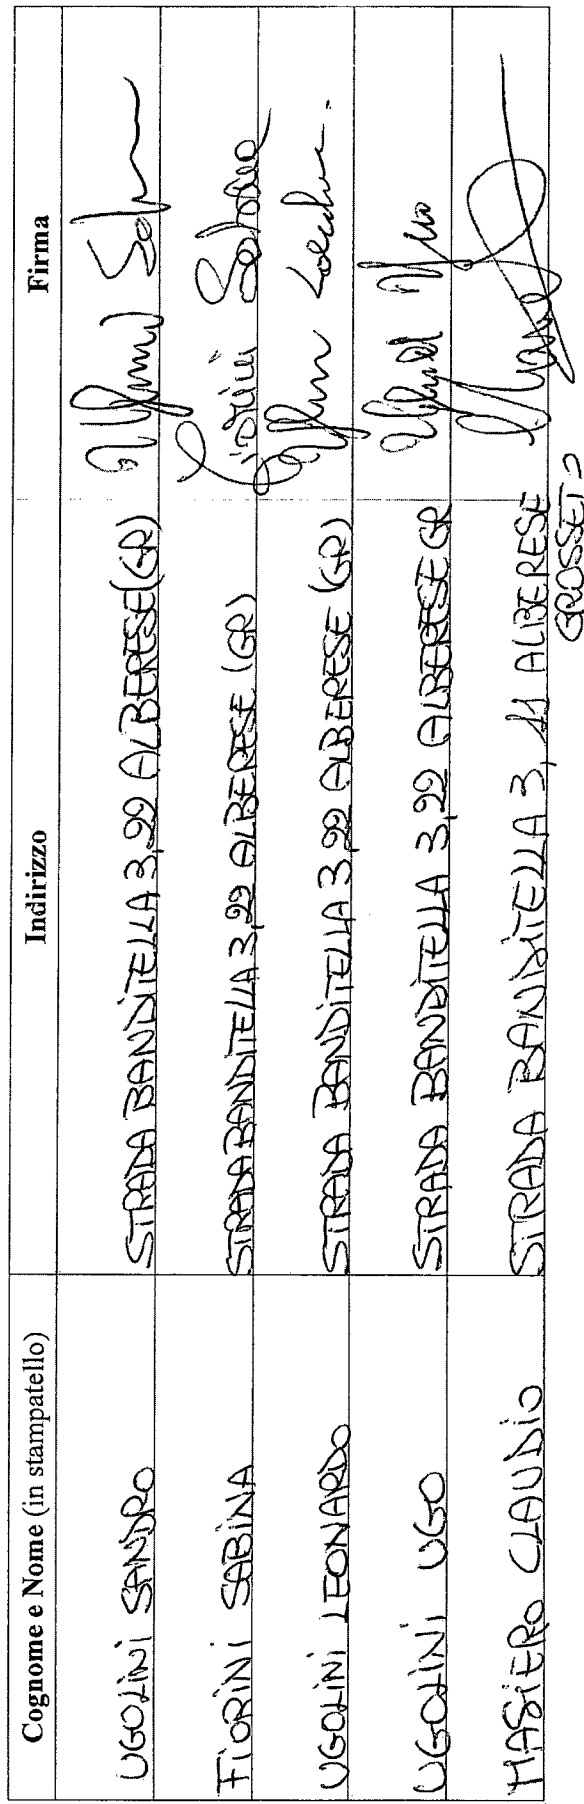 Cognome e Nome (in stampatello) Indirizzo Firma
UGOLINI SANDRO STRADA BANDITELLA 3,22 ALBERESE (GR)
FIORINI SABINA STRADA BANDITELLA 3,22 ALBERESE (GR) Fiorini Sabina
UGOLINI LEONARDO STRADA BANDITELLA 3,22 ALBERESE (GR)
UGOLINI UGO STRADA BANDITELLA 3,22 ALBERESE GR
MASIERO CLAUDIO STRADA BANDITELLA 3, 11 ALBERESE
GROSSETO